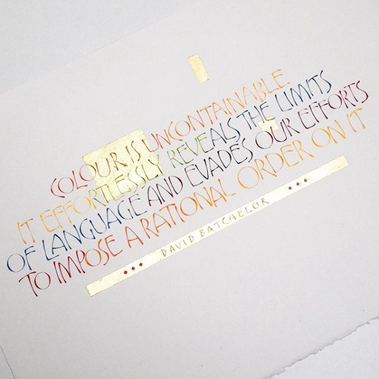 COLOUR IS UNCONTAINABLE
IT EFFORTLESSLY REVEALS THE LIMITS
OF LANGUAGE AND EVADES OUR EFFORTS
TO IMPOSE A RATIONAL ORDER ON IT
DAVID BATCHELOR